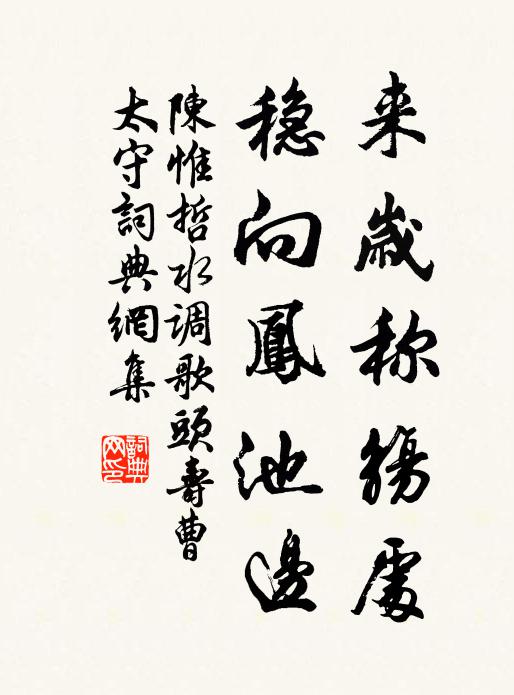 来歲称觴處
穏向鳳池邊
陳惟哲水调歌頭壽曹
太守詞典網集
詞典
网印